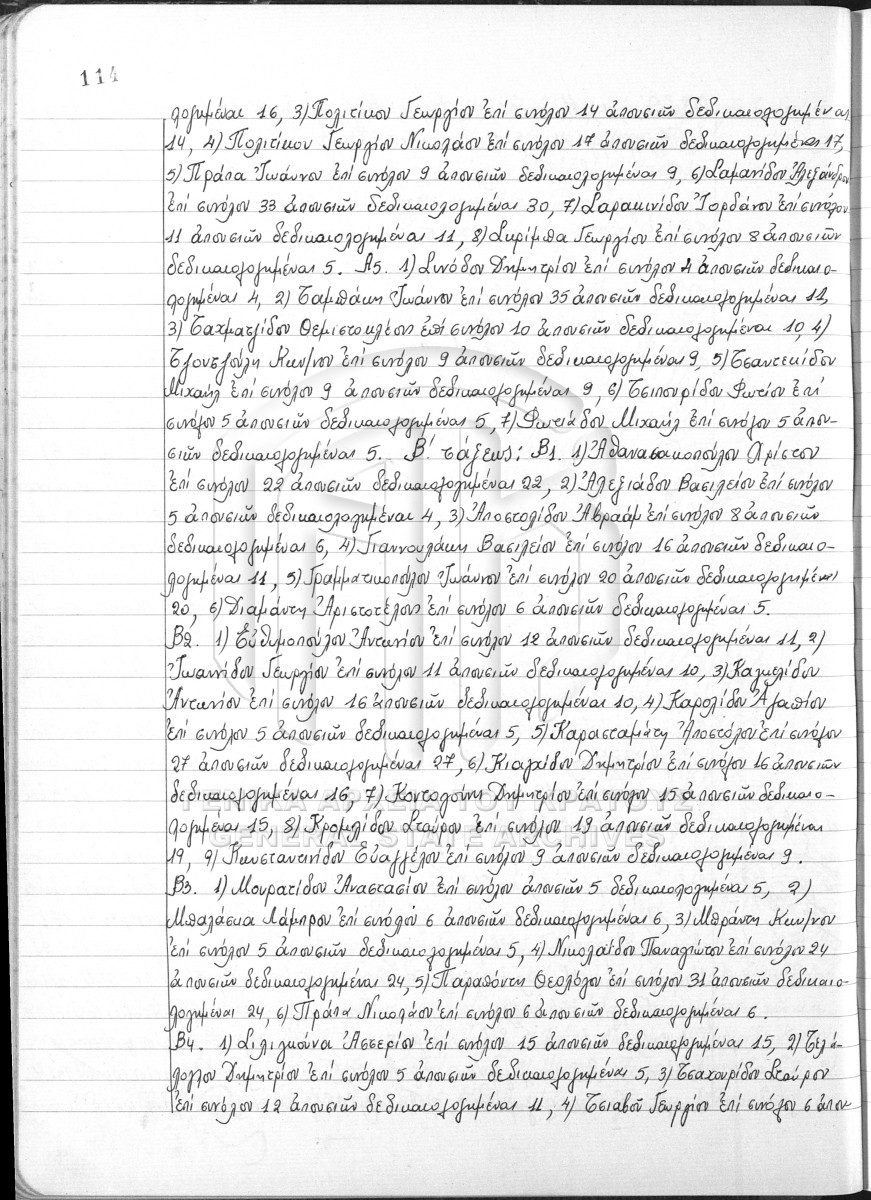 114
λογημέναι 16, 3) Πολιτίκου Γεωργίου ἐπί συνόλου 14 ἀπουσιῶν δεδικαιολογημέναι
14, 4) Πολιτίκου Γεωργίου Νικολάου ἐπί συνόλου 17 ἀπουσιῶν δεδικαιολογημέναι 17,
5) Πράπα Ἰωάννου ἐπί συνόλου 9 ἀπουσιῶν δεδικαιολογημέναι 9, 6) Σαμανίδου Ἀλεξάνδρου
ἐπί συνόλου 33 ἀπουσιῶν δεδικαιολογημέναι 30, 7) Σαρακινίδου Ἰορδάνου ἐπί συνόλου
11 ἀπουσιῶν δεδικαιολογημέναι 11, 8) Σκρίμπα Γεωργίου ἐπί συνόλου 8 ἀπουσιῶν
δεδικαιολογημέναι 5. Α5. 1) Συνόδου Δημητρίου ἐπί συνόλου 4 ἀπουσιῶν δεδικαιο-
λογημέναι 4, 2) Ταμπάκη Ἰωάννου ἐπί συνόλου 35 ἀπουσιῶν δεδικαιολογημέναι 11,
3) Ταχματζίδου Θεμιστοκλέους ἐπί συνόλου 10 ἀπουσιῶν δεδικαιολογημέναι 10, 4)
Τζουτζούλη Κων/νου ἐπί συνόλου 9 ἀπουσιῶν δεδικαιολογημέναι 9, 5) Τσαντεκίδου
Μιχαήλ ἐπί συνόλου 9 ἀπουσιῶν δεδικαιολογημέναι 9, 6) Τσιπουρίδου Φωτίου ἐπί
συνόλου 5 ἀπουσιῶν δεδικαιολογημέναι 5, 7) Φωτιάδου Μιχαήλ ἐπί συνόλου 5 ἀπου-
σιῶν δεδικαιολογημέναι 5. Β΄. τάξεως: Β1. 1) Ἀθανασακοπούλου Χρίστου
ἐπί συνόλου 22 ἀπουσιῶν δεδικαιολογημέναι 22, 2) Ἀλεξιάδου Βασιλείου ἐπί συνόλου
5 ἀπουσιῶν δεδικαιολογημέναι 4, 3) Ἀποστολίδου Ἀβραάμ ἐπί συνόλου 8 ἀπουσιῶν
δεδικαιολογημέναι 6, 4) Γιαννουλάκη Βασιλείου ἐπί συνόλου 16 ἀπουσιῶν δεδικαιο-
λογημέναι 11, 5) Γραμματικοπούλου Ἰωάννου ἐπί συνόλου 20 ἀπουσιῶν δεδικαιολογημέναι
20, 6) Διαμάντη Ἀριστοτέλους ἐπί συνόλου 6 ἀπουσιῶν δεδικαιολογημέναι 5.
Β2. 1) Εὐθυμοπούλου Ἀντωνίου ἐπί συνόλου 12 ἀπουσιῶν δεδικαιολογημέναι 11, 2)
Ἰωαννίδου Γεωργίου ἐπί συνόλου 11 ἀπουσιῶν δεδικαιολογημέναι 10, 3) Καλπελίδου
Ἀντωνίου ἐπί συνόλου 16 ἀπουσιῶν δεδικαιολογημέναι 10, 4) Καρολίδου Ἀγαπίου
ἐπί συνόλου 5 ἀπουσιῶν δεδικαιολογημέναι 5, 5) Καρασταμάτη Ἀποστόλου ἐπί συνόλου
27 ἀπουσιῶν δεδικαιολογημέναι 27, 6) Κιαχίδου Δημητρίου ἐπί συνόλου 16 ἀπουσιῶν
δεδικαιολογημέναι 16, 7) Κονταλούνη Δημητρίου ἐπί συνόλου 15 ἀπουσιῶν δεδικαιο-
λογημέναι 15, 8) Κρομλίδου Σταύρου ἐπί συνόλου 19 ἀπουσιῶν δεδικαιολογημέναι
19, 9) Κωνσταντινίδου Εὐαγγέλου ἐπί συνόλου 9 ἀπουσιῶν δεδικαιολογημέναι 9.
Β3. 1) Μουρατίδου Ἀναστασίου ἐπί συνόλου ἀπουσιῶν 5 δεδικαιολογημέναι 5, 2)
Μπαλάσκα Λάμπρου ἐπί συνόλου 6 ἀπουσιῶν δεδικαιολογημέναι 6, 3) Μπράντη Κων/νου
ἐπί συνόλου 5 ἀπουσιῶν δεδικαιολογημέναι 5, 4) Νικολαΐδου Παναγιώτου ἐπί συνόλου 24
ἀπουσιῶν δεδικαιολογημέναι 24, 5) Παραπόντη Θεολόγου ἐπί συνόλου 31 ἀπουσιῶν δεδικαιο-
λογημέναι 24, 6) Πράπα Νικολάου ἐπί συνόλου 6 ἀπουσιῶν δεδικαιολογημέναι 6.
Β4. 1) Σιλιγκούνα Ἀστερίου ἐπί συνόλου 15 ἀπουσιῶν δεδικαιολογημέναι 15, 2) Τελά-
λογλου Δημητρίου ἐπί συνόλου 5 ἀπουσιῶν δεδικαιολογημέναι 5, 3) Τσαχουρίδου Σταύρου
ἐπί συνόλου 12 ἀπουσιῶν δεδικαιολογημέναι 11, 4) Τσιαβοῦ Γεωργίου ἐπί συνόλου 6 ἀπου
ΓΕΝΙΚΑ ΑΡΧΕΙΑ ΤΟΥ ΚΡΑΤΟΥΣ
GENERAL STATE ARCHIVES